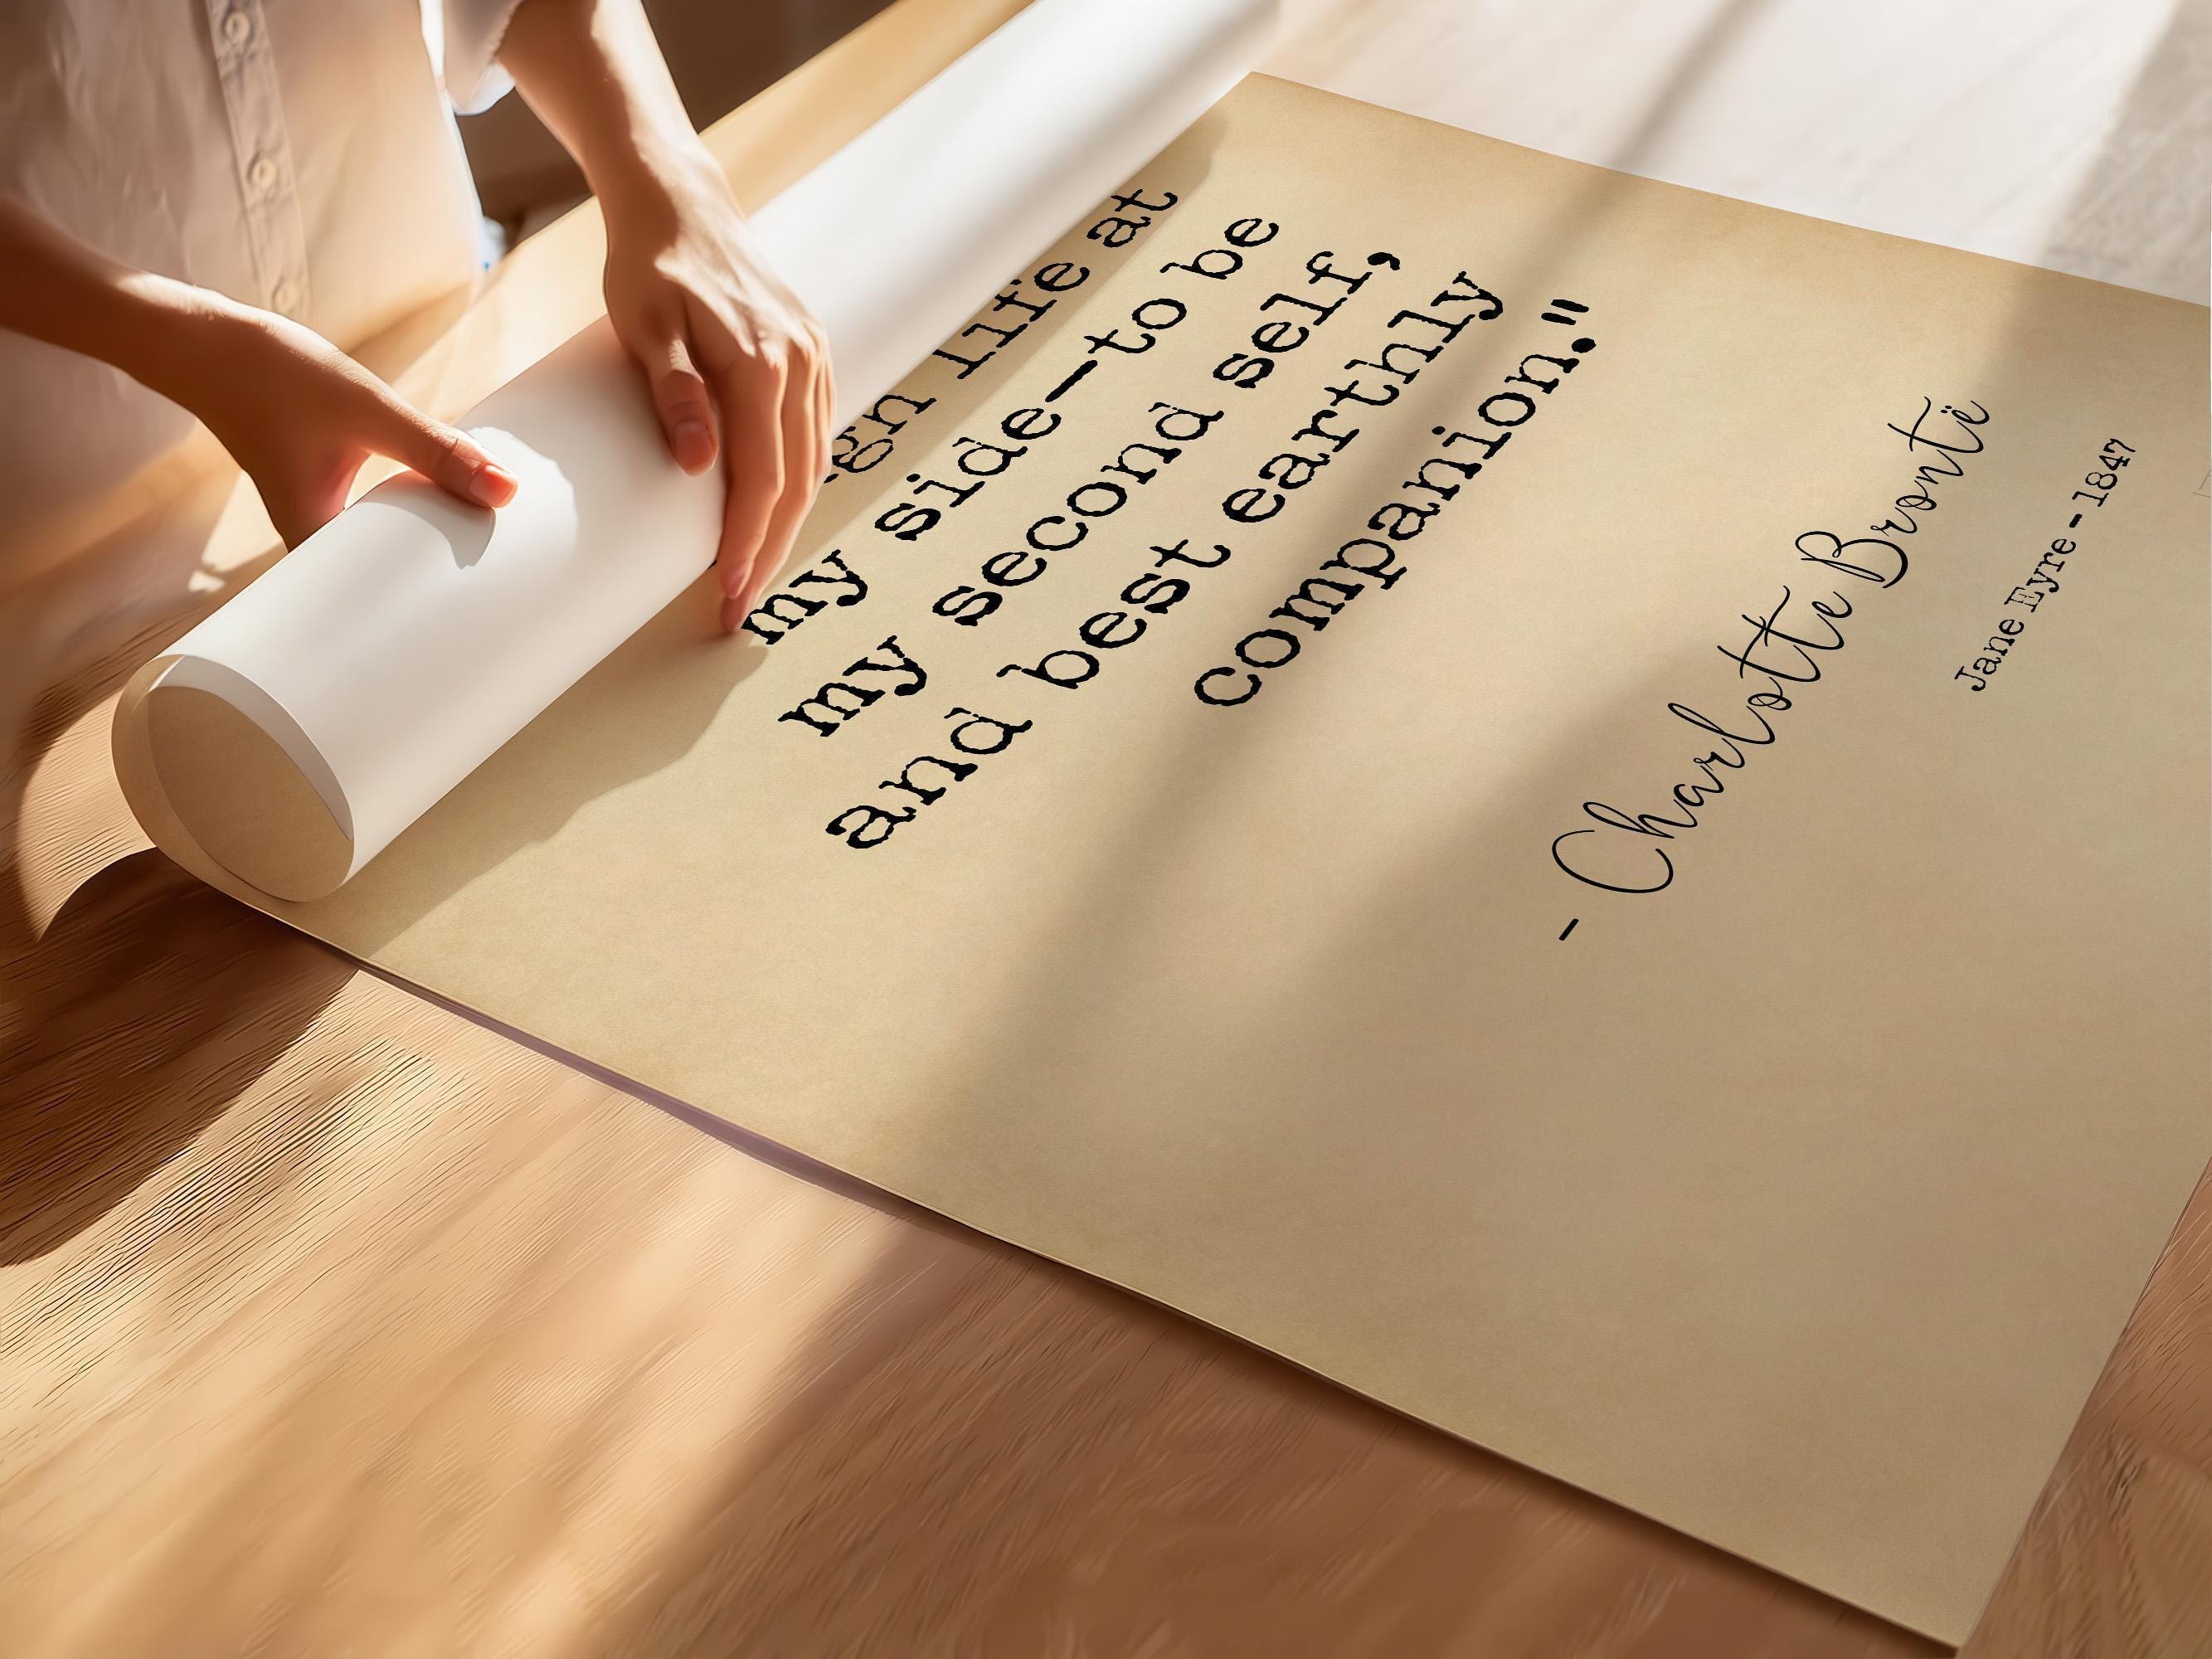 life at
my side—to be
my second self,
and best earthly
companion."
- Charlotte Brontë
Jane Eyre - 1847